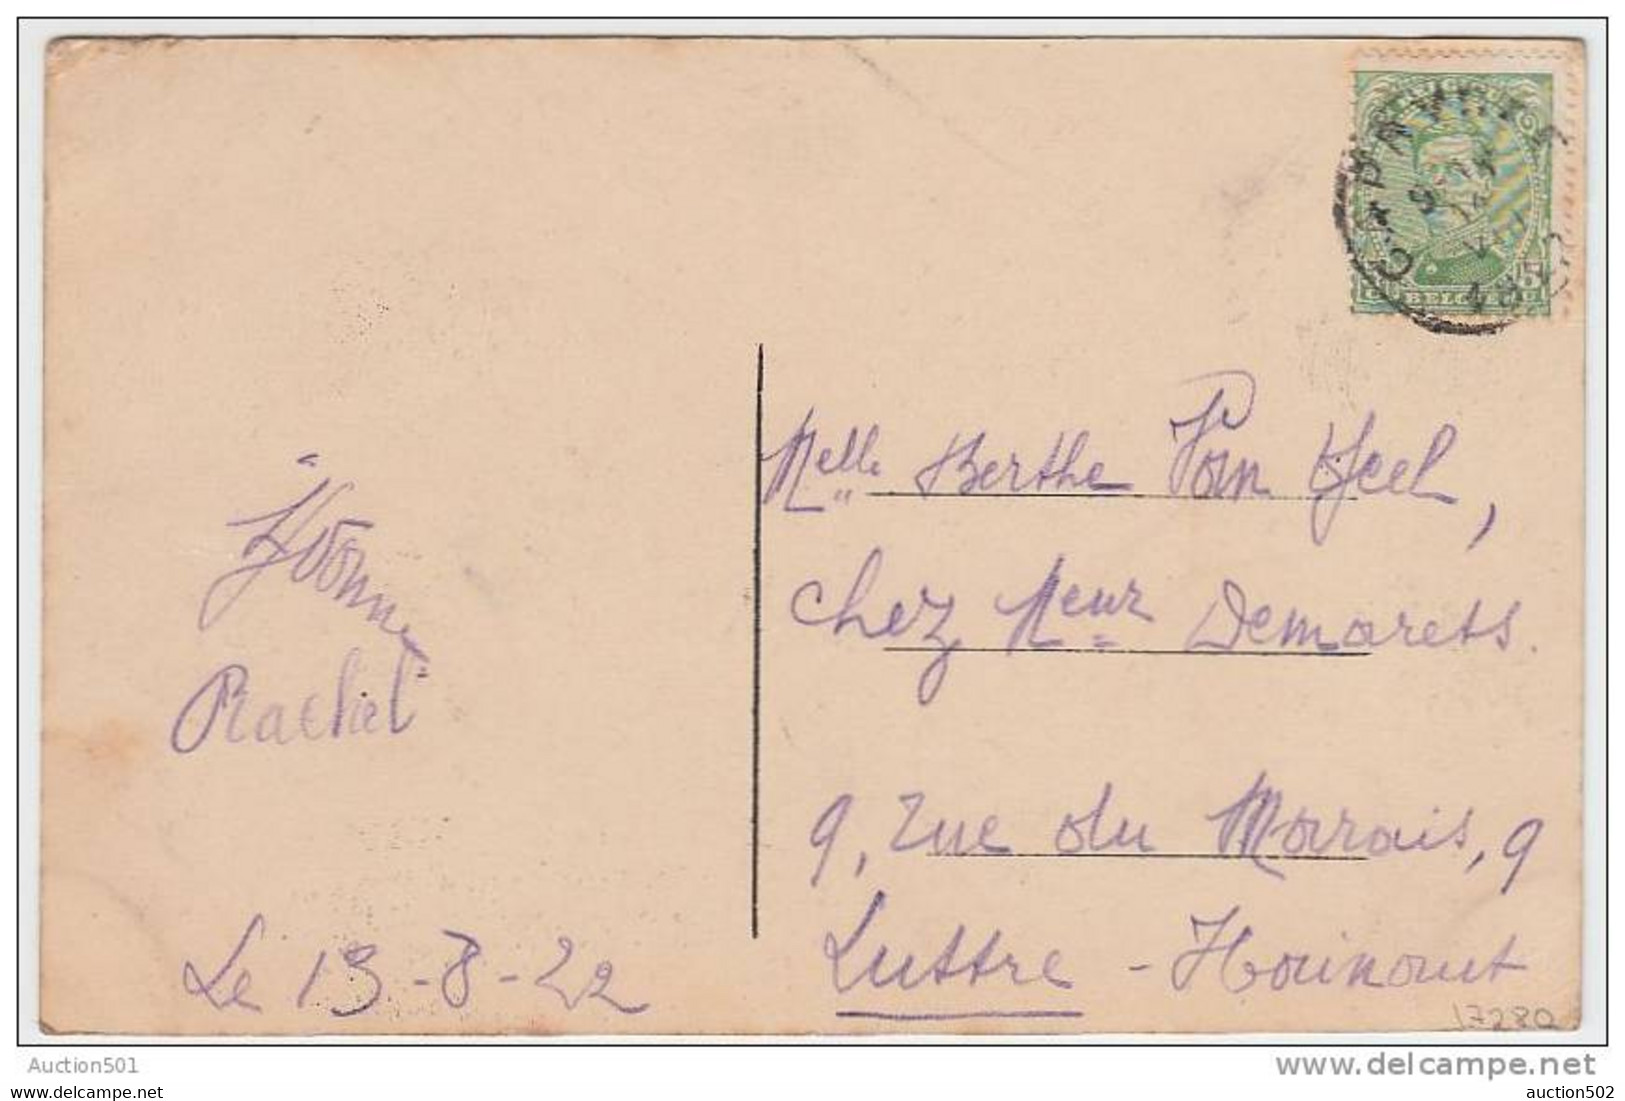 "Yvonne
Rachel"
Le 13-8-22
Melle Berthe Van Geel,
chez Meur Demarets.
9, rue du Marais, 9
Luttre - Hainaut
17280
5
BELGIE
Auction501
auction502
www.delcampe.net